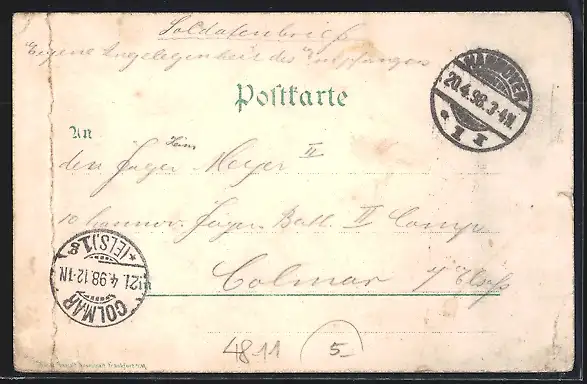 Soldatenbrief
Eigene Angelegenheit des Empfängers
Postkarte
HANNOVER
20.4.98.3-4N.
* 1 I
An
Heinr
den Jäger Meyer II
10 hannov. Jäger Batl. II Comp
in Colmar i/Elsaß
COLMAR
21. 4.98.12-1N
*(ELS.)1
48 11
5-
Frankfurt a/M.